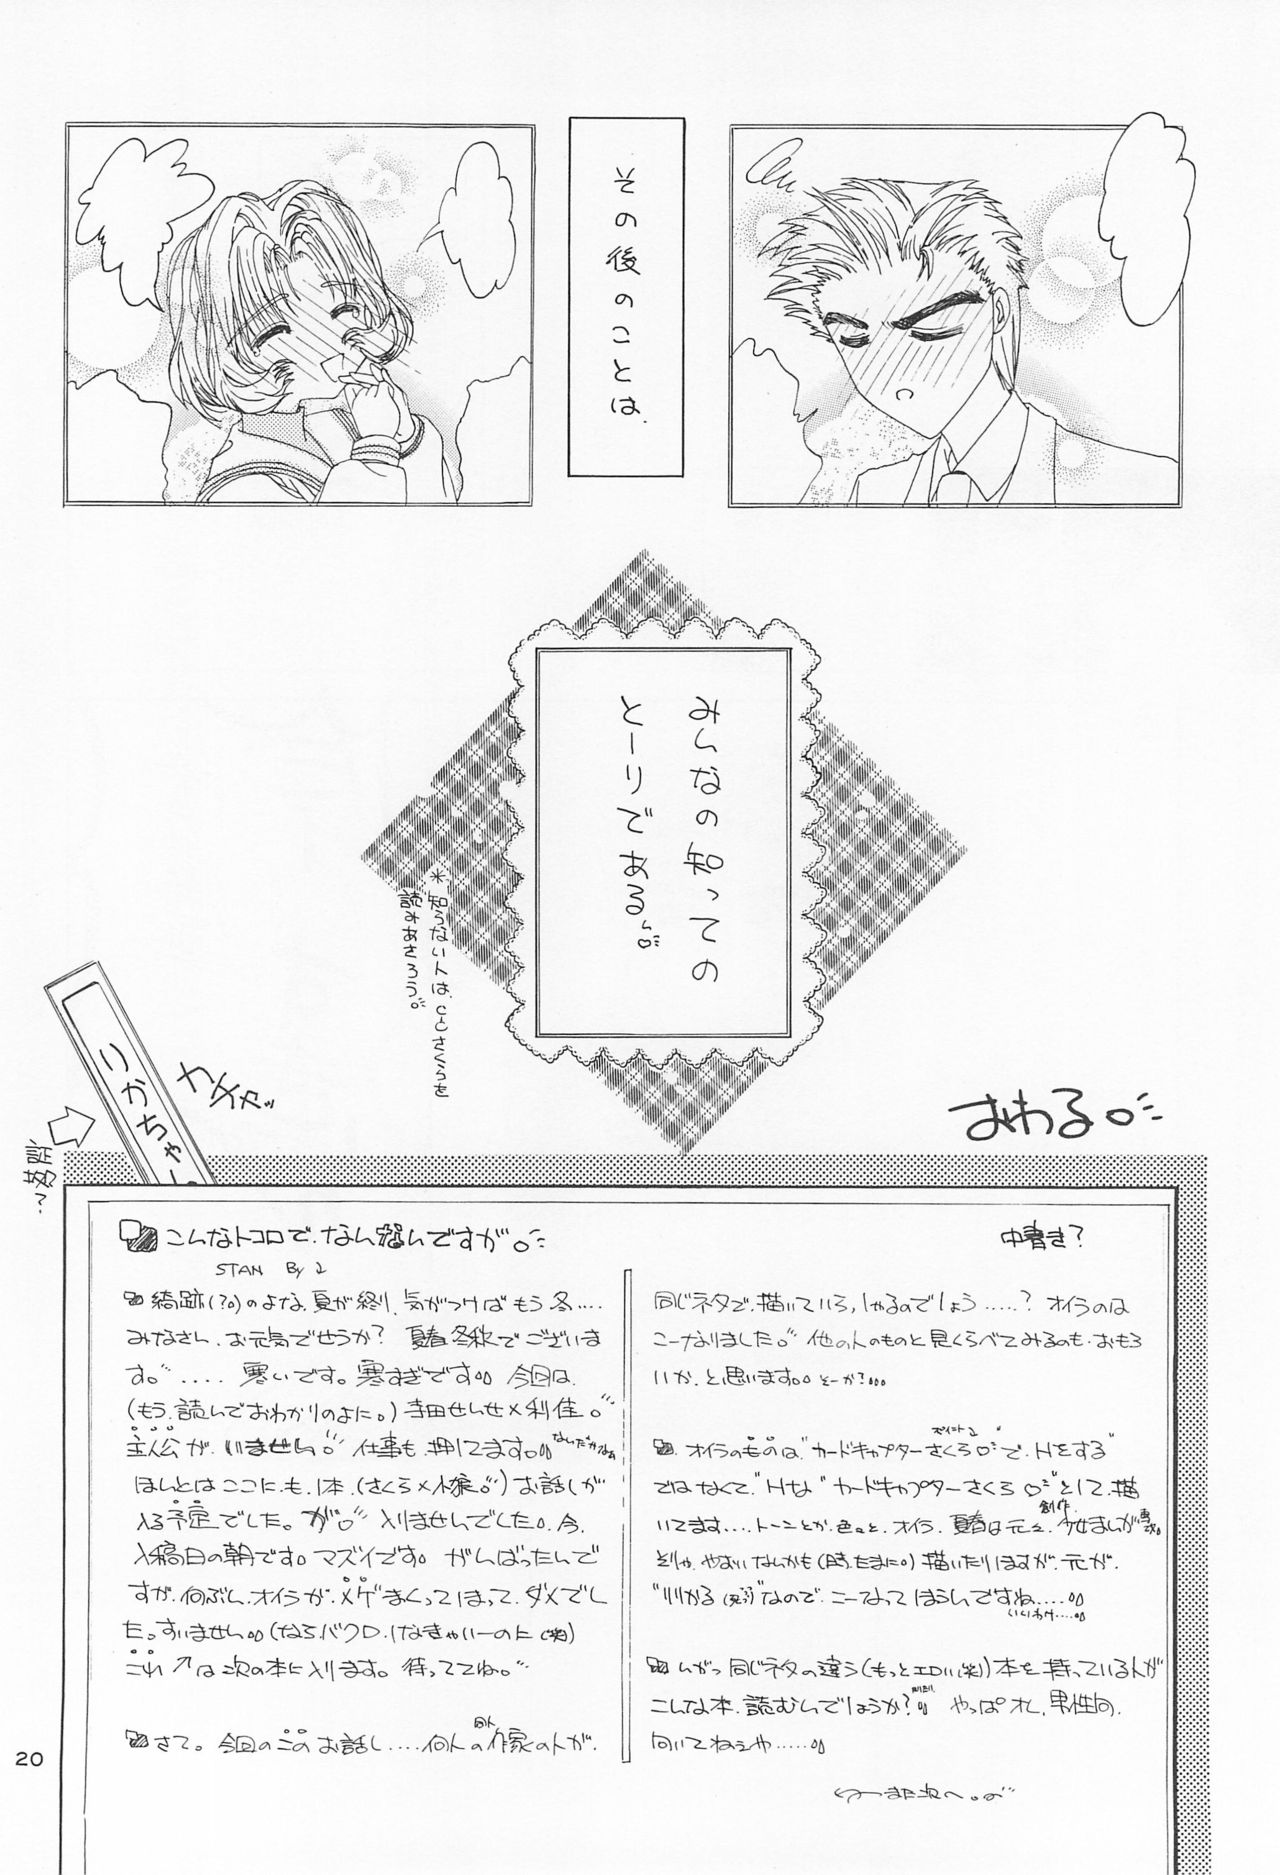 その後のことは、
みんなの知っての
とーりである。
*知らない人は、CCさくらを
読みあさろう。
おわる
りかちゃん
カチャッ
こんなトコロで、なんなんですが。
中書き?
STAN By 2
綺跡(?)のよな、夏が終り、気がつけばもう冬....
みなさん、お元気でせうか? 夏春冬秋でございま
す。.... 寒いです。寒すぎです 今回は、
(もう、読んでおわかりのよに。)寺田せんせ×利佳。
主人公が、いません。仕事も、押してます。
ほんとはここにも、1本、(さくら×小狼)お話しが
入る予定でした。が 入りませんでした。今、
入稿日の朝です。マズイです。がんばったんで
すが、何ぶん、オイラが、メゲまくってほって、ダメでし
た。すいません (なら、バクロ、しなきゃいーのに(笑)
これ↗は次の本に入ります。待っててね。
さて。今回のこのお話し....何人の作家の人が、
同じネタで、描いていらっしゃるのでしょう.....? オイラのは
こーなりました。他の人のものと見くらべてみるのも、おもろ
いか、と思います。そーか?
オイラのものは、"カードキャプターさくらで、Hをする"
ではなくて、"Hな"カードキャプターさくら"として、描
いてます....トーンとか、色々と、オイラ、夏春は元々、創作少女まんが
そりゃ、やおいなんかも(時、たまに。)描いたりしますが、元が、
なので、こーなってほうんですね.....
いいわけ....
同じネタの違う(もっとエロい(笑))本を持っている人が
こんな本、読むんでしょうか? やっぱオレ、男性向、
向いてねぇや.....
また次へ。
20